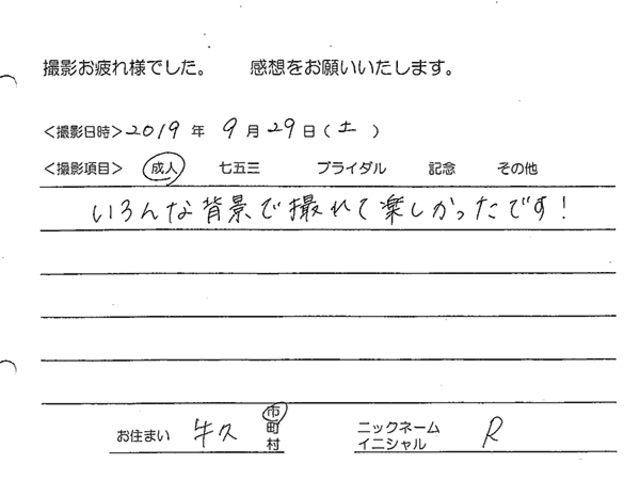 撮影お疲れ様でした。 感想をお願いいたします。
<撮影日時>2019年 9月29日(土)
<撮影項目> 成人 七五三 ブライダル 記念 その他
いろんな背景で撮れて楽しかったです!
お住まい 牛久 市町村 ニックネーム イニシャル R